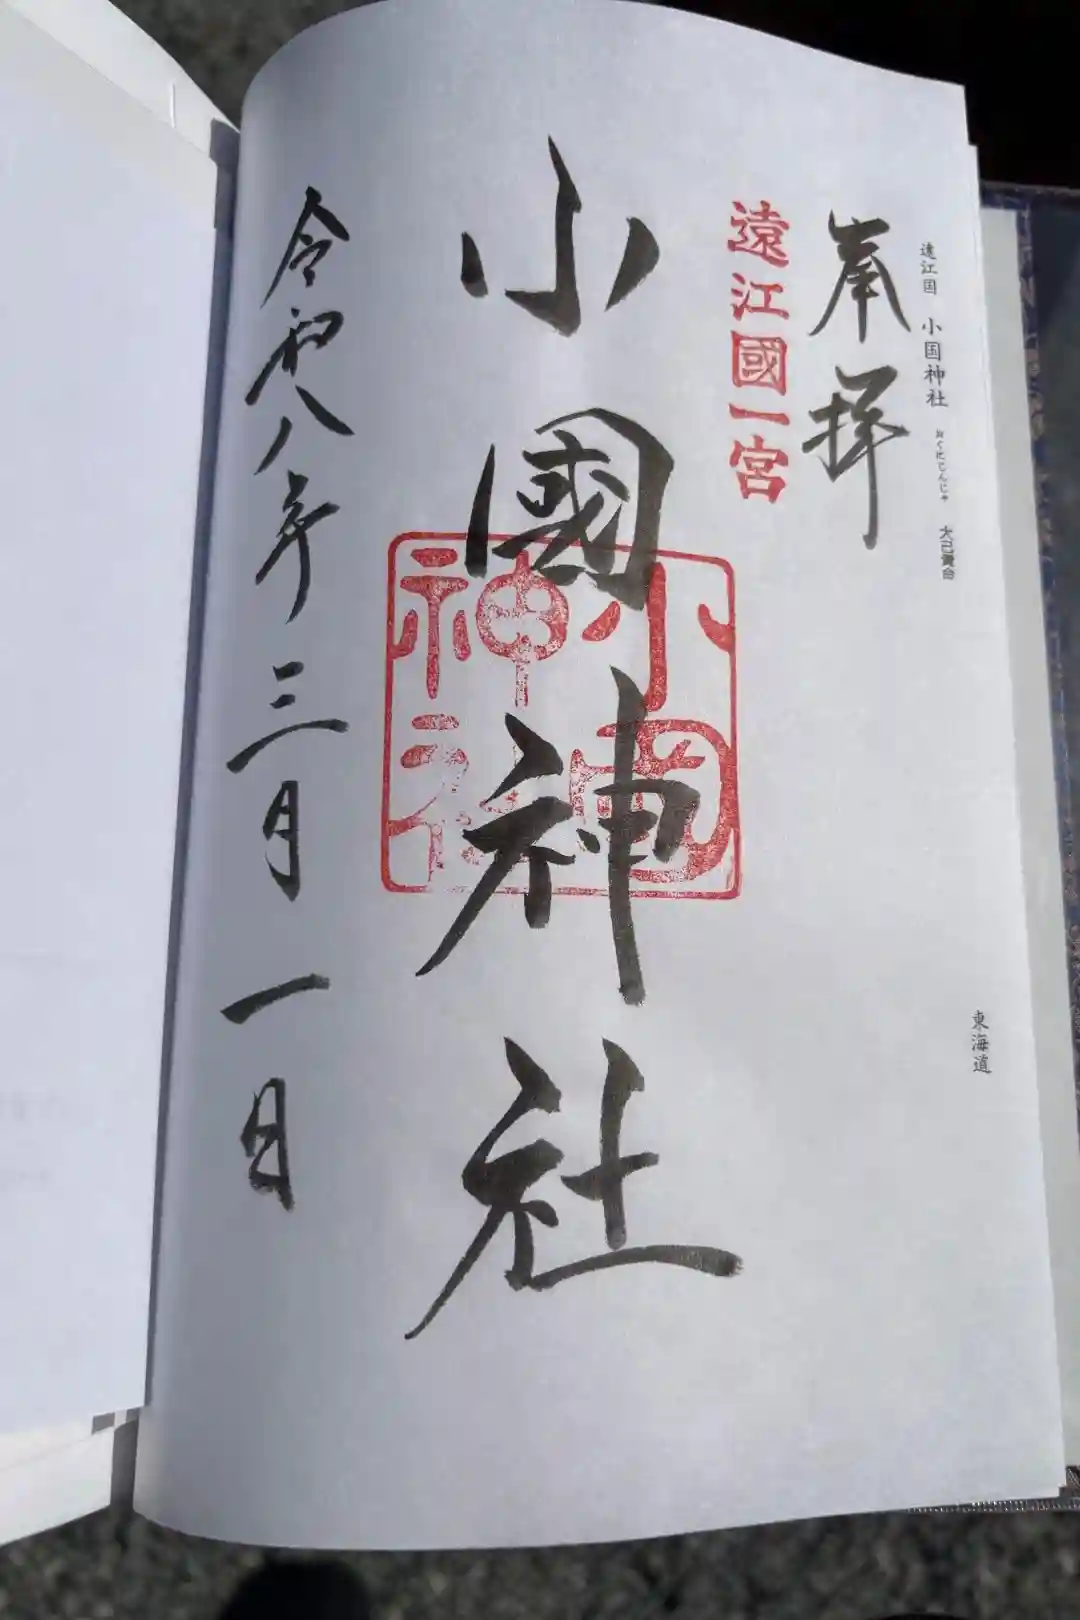 遠江国 小国神社 おくにじんじゃ 大己貴命
東海道
奉拝
遠江國一宮
小國神社
小國神社
令和八年三月一日